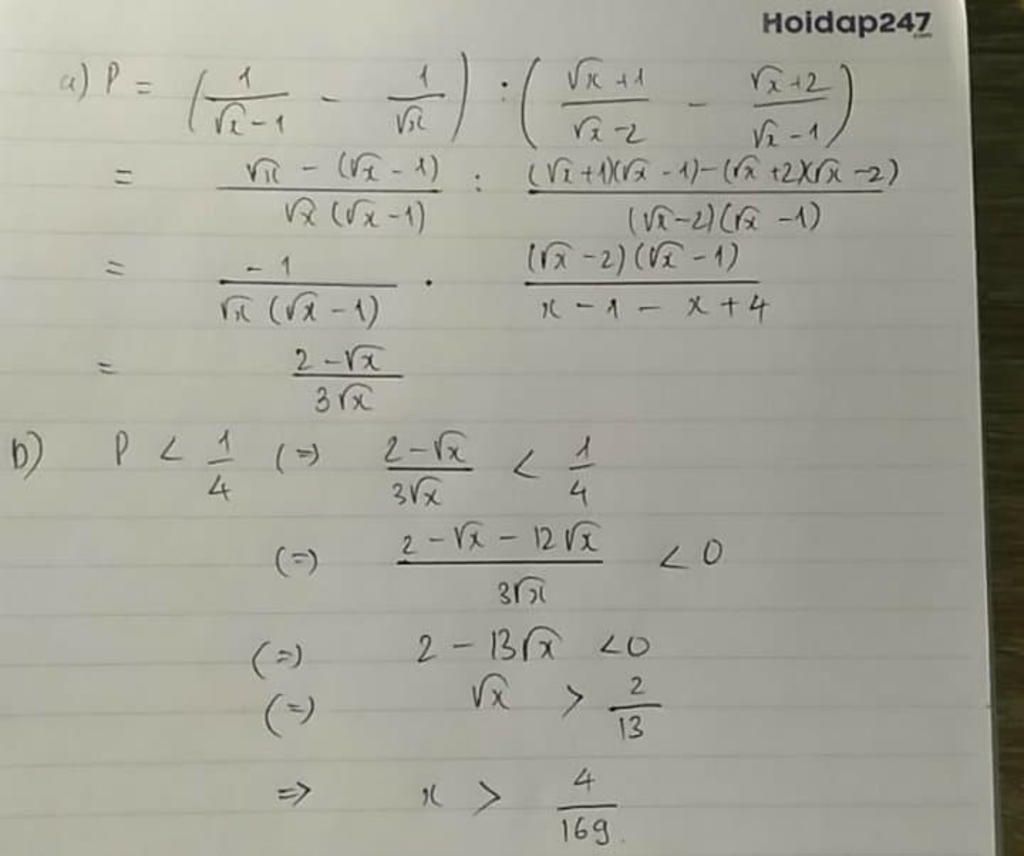 Hoidap247.com
a) P = (1/(√x - 1) - 1/√x) : ((√x + 1)/(√x - 2) - (√x + 2)/(√x - 1))
= (√x - (√x - 1))/(√x (√x - 1)) : ((√x + 1)(√x - 1) - (√x + 2)(√x - 2))/((√x - 2)(√x - 1))
= -1/(√x (√x - 1)) . ((√x - 2)(√x - 1))/(x - 1 - x + 4)
= (2 - √x)/(3√x)
b) P < 1/4 (=) (2 - √x)/(3√x) < 1/4
(=) (2 - √x - 12√x)/(3√x) < 0
(=) 2 - 13√x < 0
(=) √x > 2/13
=> x > 4/169.